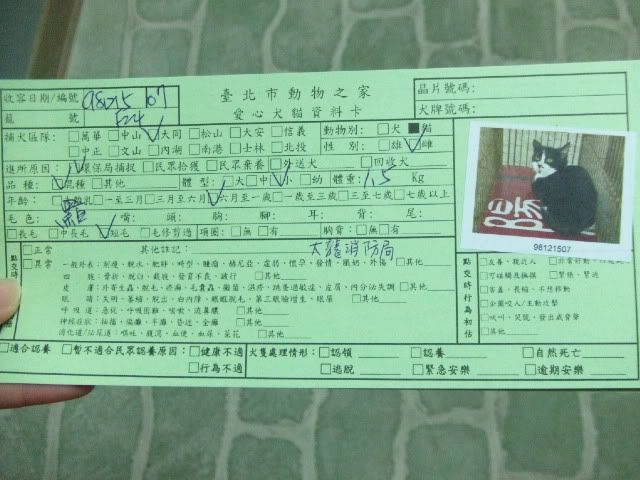 臺北市動物之家
愛心犬貓資料卡
收容日期/編號 981215 07
籠 號 E24
晶片號碼:
犬牌號碼:
補犬區隊: □萬華 □中山 ☑大同 □松山 □大安 □信義
□中正 □文山 □內湖 □南港 □士林 □北投
動物別: □犬 ■貓
性 別: □雄 ☑雌
進所原因: ☑環保局捕捉 □民眾拾獲 □民眾棄養 □外送犬 □回收犬
品 種: ☑混種 □其他 體 型: □大 □中 ☑小 □幼 體重: 1.5 Kg
年齡: □離乳 □一至三月 □三月至六月 ☑六月至一歲 □一歲至三歲 □三至七歲 □七歲以上
毛色: 黑白 嘴: 頭: 胸: 腳: 耳: 背: 尾:
□長毛 □中長毛 ☑短毛 □毛修剪過 項圈: □無 □有 胸背: □無 □有
點交時
□正常 其他註記: 大龍消防局
□異常 一般外表: 削瘦、脫水、肥胖、畸型、腫瘤、赫尼亞、虛弱、懷孕、發情、眼奶、外傷 □其他
四 肢: 骨折、脫臼、截肢、發育不良、跛行 □其他
皮 膚: 外寄生蟲、脫毛、疥癬、毛囊蟲、黴菌、濕疹、跳蚤過敏症、皮屑、內分泌失調 □其他
眼 睛: 失明、萎縮、脫出、白內障、眼瞼脫毛、第三眼瞼增生、眼屎 □其他
呼吸道: 急促、呼吸困難、咳嗽、流鼻膿 □其他
神經症狀: 抽搐、偏癱、半癱、昏迷、全癱 □其他
消化道/泌尿道: 嘔吐、腹瀉、血便、血尿、菜花 □其他
98121507
點交時行為初估
□友善、親近人 □非常好動
□可碰觸且撫摸 □緊張、緊迫
□害羞、長縮、不想移動
□企圖咬人/主動攻擊
□吠叫、哭號、發出威脅聲
□其他
□適合認養 □暫不適合民眾認養原因: □健康不適
□行為不適
犬隻處理情形: □認領 □認養 □自然死亡
□逃脫 □緊急安樂 □逾期安樂